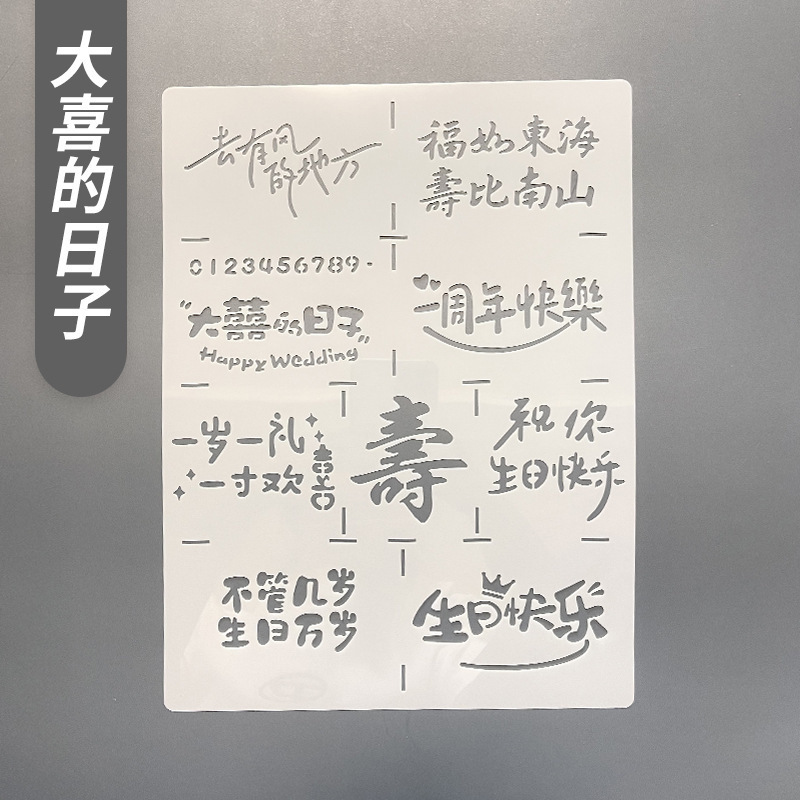 大喜的日子
去有风
的地方
福如東海
壽比南山
0123456789-
"大囍的日子"
Happy Wedding
一周年快樂
一岁一礼
一寸欢喜
壽
祝你
生日快乐
不管几岁
生日万岁
生日快乐